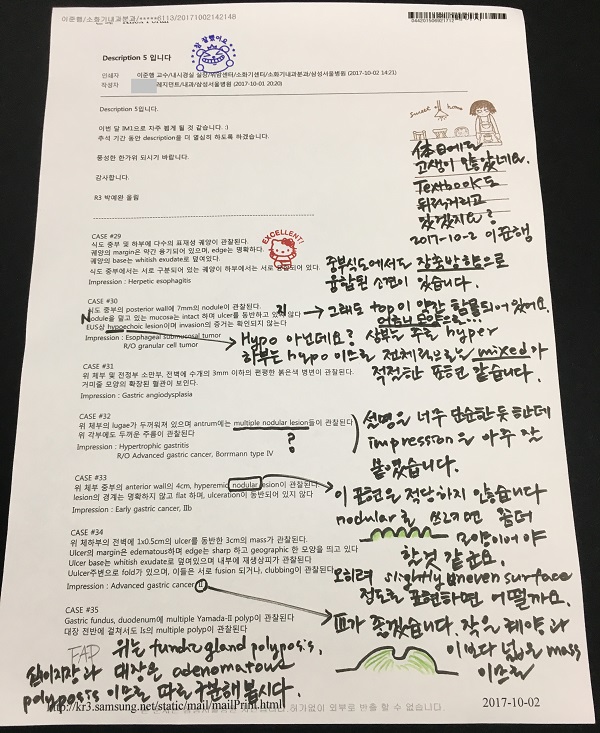 이준행/소화기내과분과/*****6113/20171002142148
Description 5 입니다
참 잘했어요
인쇄자 이준행 교수/내시경실 실장/위암센터/소화기센터/소화기내과분과/삼성서울병원 (2017-10-02 14:21)
작성자 레지던트/내과/삼성서울병원 (2017-10-01 20:20)
Description 5입니다.
이번 달 3M1으로 자주 뵙게 될 것 같습니다. :)
추석 기간 동안 description를 더 열심히 하도록 하겠습니다.
풍성한 한가위 되시기 바랍니다.
감사합니다.
R3 박예완 올림
sweet home
休日에도
고생이 많았네요.
Textbook도
뒤적거리고
있겠지요?
2017-10-2 이준행
CASE #29
식도 중부 및 하부에 다수의 표재성 궤양이 관찰된다.
궤양의 margin은 약간 융기되어 있으며, edge는 명확하다.
궤양의 base는 whitish exudate로 덮여있다.
식도 중부에서는 서로 구분되어 있는 궤양이 하부에서는 서로 되어 있다.
Impression : Herpetic esophagitis
EXCELLENT!
중부식도에서도 장축방향으로
융합된 소견이 있습니다.
CASE #30
식도 중부의 posterior wall에 7mm의 nodule이 관찰된다.
Nodule을 덮고 있는 mucosa는 intact 하며 ulcer를 동반하고 있지 않다
EUS상 hypoechoic lesion이며 invasion의 증거는 확인되지 않는다
Impression : Esophageal submucosal tumor
R/O granular cell tumor
그래도 top이 약간 함몰되어 있어요.
어금니 모양으로...
Hypo 아닌데요? 상부는 주로 hyper
하부는 hypo 이므로 전체적으로는 mixed가
적절한 표현 같습니다.
CASE #31
위 체부 및 전정부 소만부, 전벽에 수개의 3mm 이하의 편평한 붉은색 병변이 관찰된다.
거미줄 모양의 확장된 혈관이 보인다.
Impression : Gastric angiodysplasia
CASE #32
위 체부의 lugae가 두꺼워져 있으며 antrum에는 multiple nodular lesion들이 관찰된다
위 각부에도 두꺼운 주름이 관찰된다
Impression : Hypertrophic gastritis
R/O Advanced gastric cancer, Borrmann type IV
?
설명은 너무 단순한듯 한데
impression을 아주 잘
붙였습니다.
CASE #33
위 체부 중부의 anterior wall의 4cm, hyperemic nodular lesion이 관찰된다
lesion의 경계는 명확하지 않고 flat 하며, ulceration이 동반되어 있지 않다
Impression : Early gastric cancer, IIb
이 표현은 적당하지 않습니다
nodular를 쓰려면 좀더
모양이어야
할것 같군요.
오히려 slightly uneven surface
정도로 표현하면 어떨까요.
CASE #34
위 체하부의 전벽에 1x0.5cm의 ulcer를 동반한 3cm의 mass가 관찰된다.
Ulcer의 margin은 edematous하며 edge는 sharp 하고 geographic 한 모양을 띄고 있다
Ulcer base는 whitish exudate로 덮여있으며 내부에 재생상피가 관찰된다
Uulcer주변으로 fold가 있으며, 이들은 서로 fusion 되거나, clubbing이 관찰된다
Impression : Advanced gastric cancer II
II가 좋겠습니다. 작은 궤양과
이보다 넓은 mass
이므로
CASE #35
Gastric fundus, duodenum에 multiple Yamada-II polyp이 관찰된다
대장 전반에 걸쳐서도 Is의 multiple polyp이 관찰된다
FAP 위는 fundic gland polyposis,
십이지장과 대장은 adenomatous
polyposis 이므로 따로 구분해 봅시다.
http://kr3.samsung.net/static/mail/mailPrint.html
허가없이 외부로 반출 할 수 없습니다.
2017-10-02